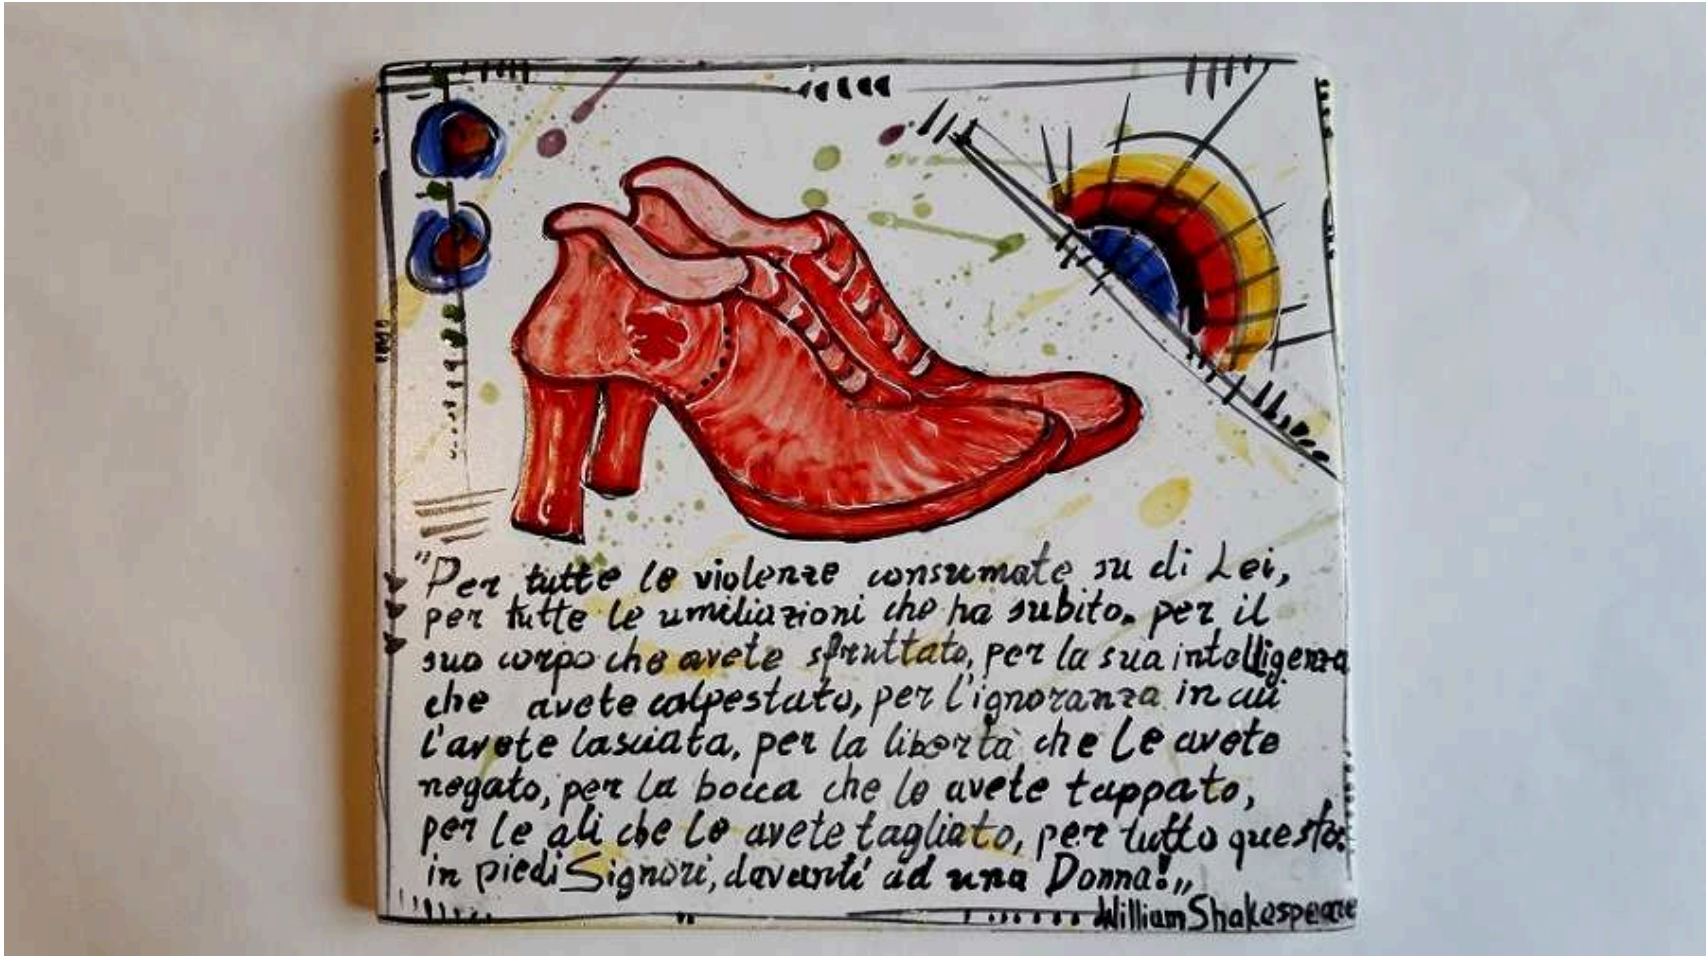 "Per tutte le violenze consumate su di Lei,
per tutte le umiliazioni che ha subito. per il
suo corpo che avete sfruttato, per la sua intelligenza
che avete calpestato, per l'ignoranza in cui
l'avete lasciata, per la libertà che le avete
negato, per la bocca che le avete tappato,
per le ali che le avete tagliato, per tutto questo:
in piedi Signori, davanti ad una Donna!„
William Shakespeare